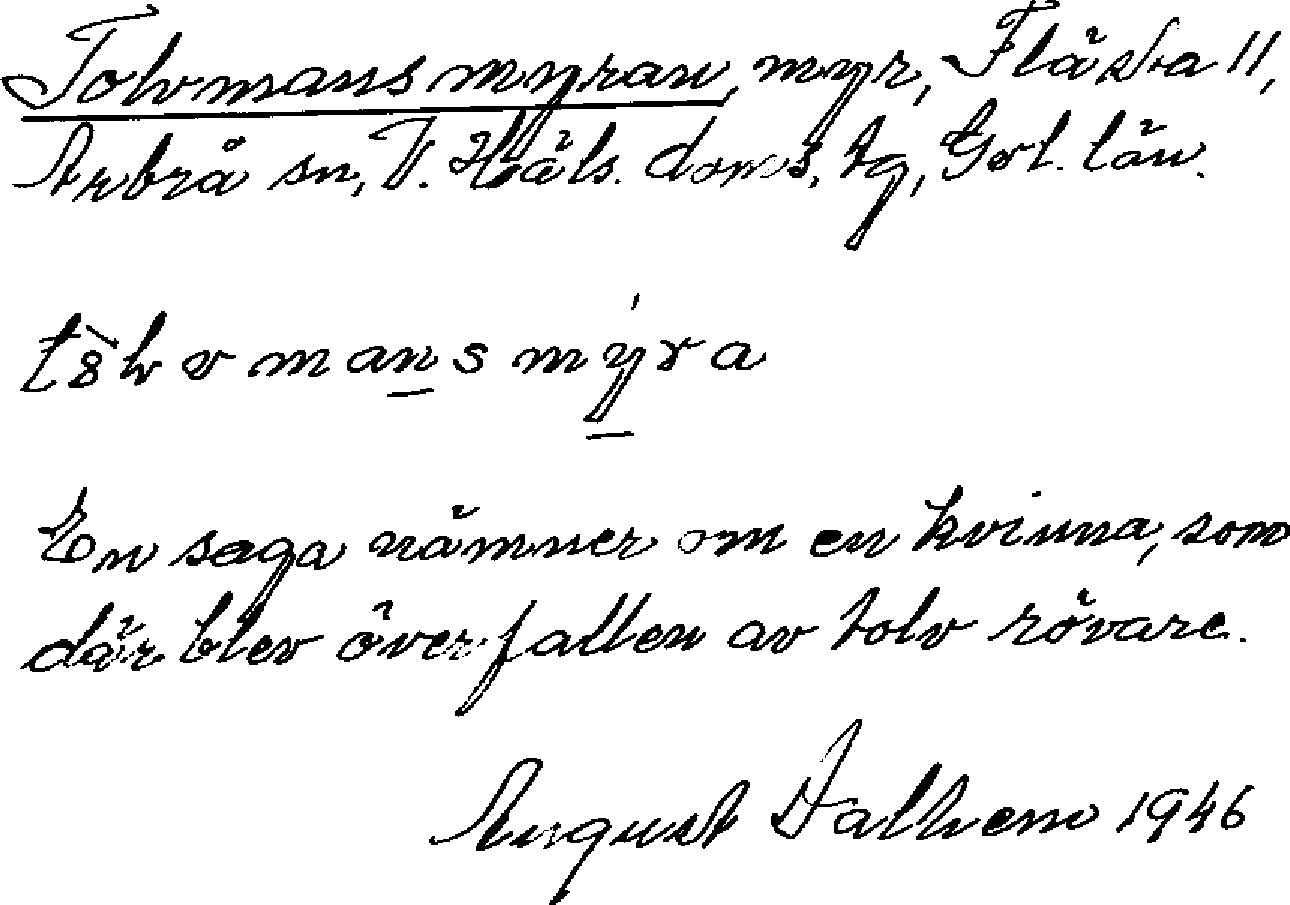 Tolvmansmyran, myr, Flästa 11,
Arbrå sn, V. Häls. doms. tg, Gvl. län.
En saga nämner om en kvinna, som
där blev överfallen av tolv rövare.
August Dalhem 1946